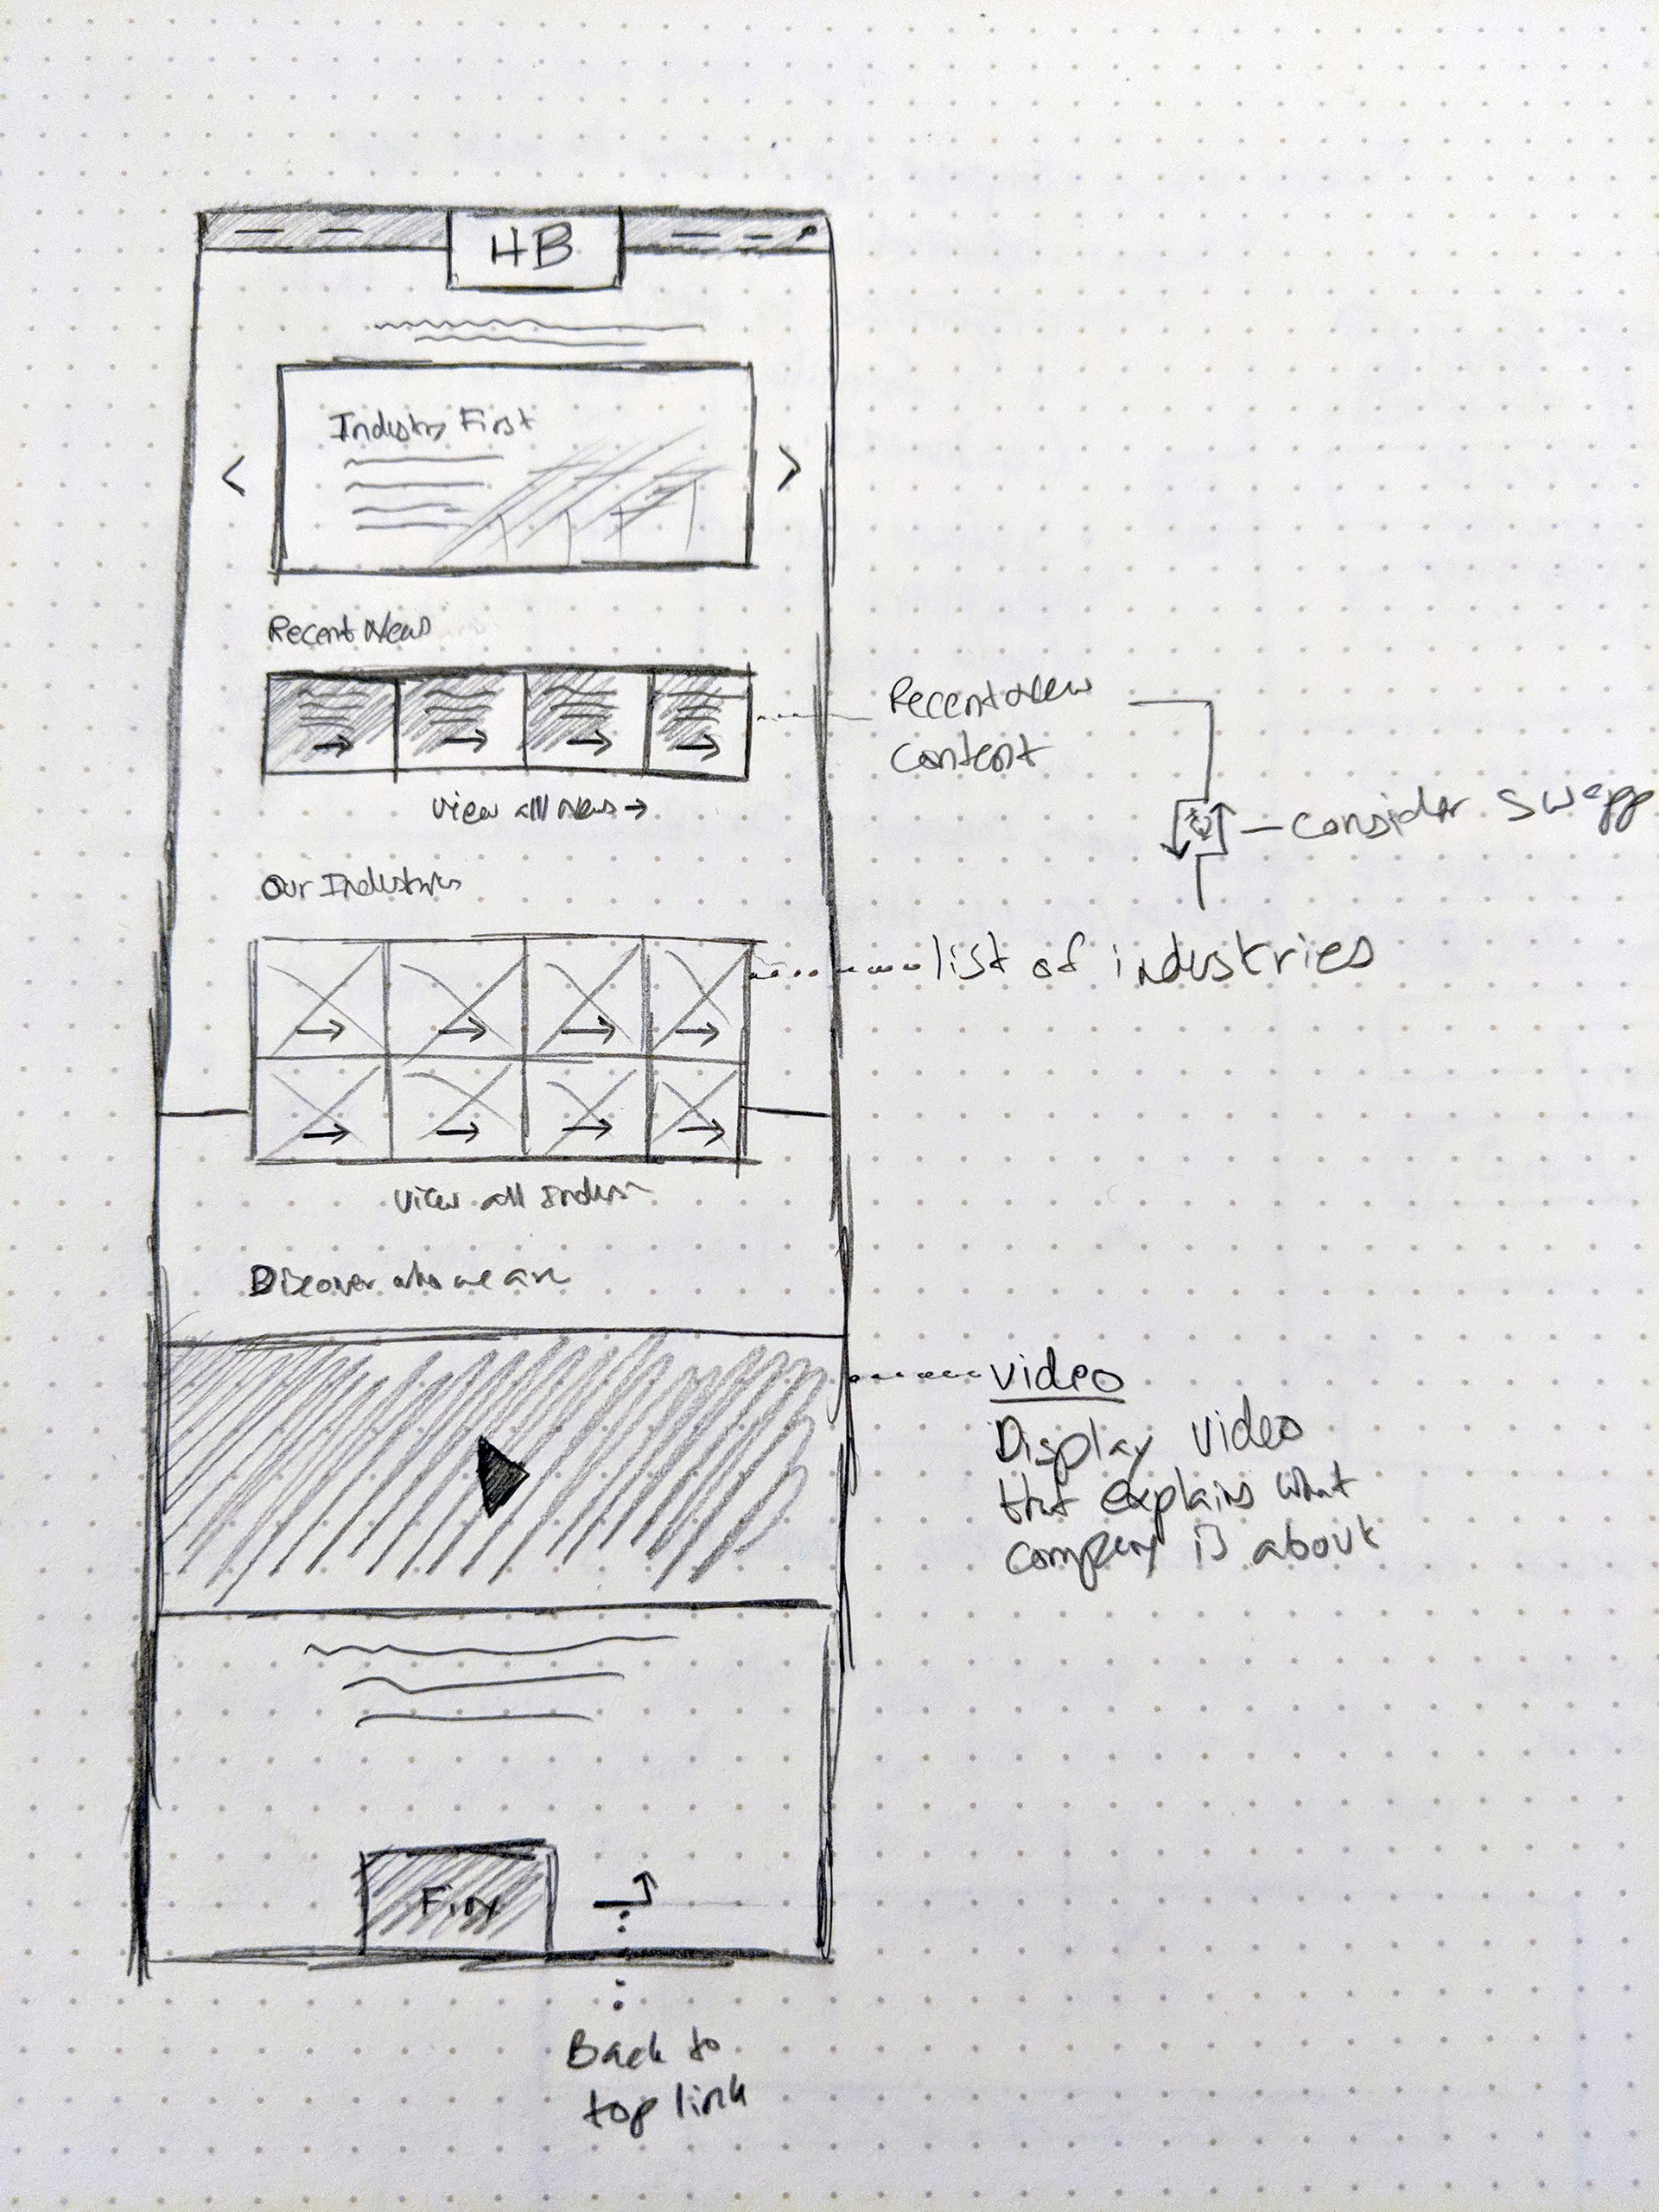 HB
Industry First
Recent News
Recent New
content
View all News →
consider swapp
Our Industries
list of industries
View all Indus
Discover who we are
video
Display video
that explains what
company is about
Back to
top link